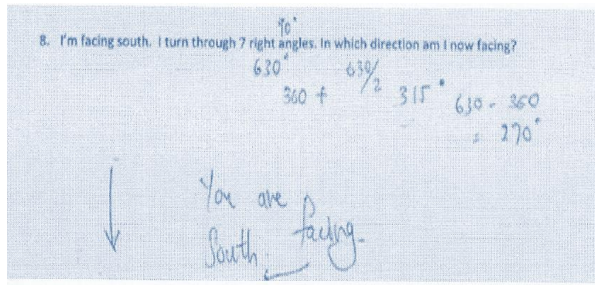 90°
8. I'm facing south. I turn through 7 right angles. In which direction am I now facing?
630°
630/2
315°
360 +
630 - 360
= 270°
You are
facing
South